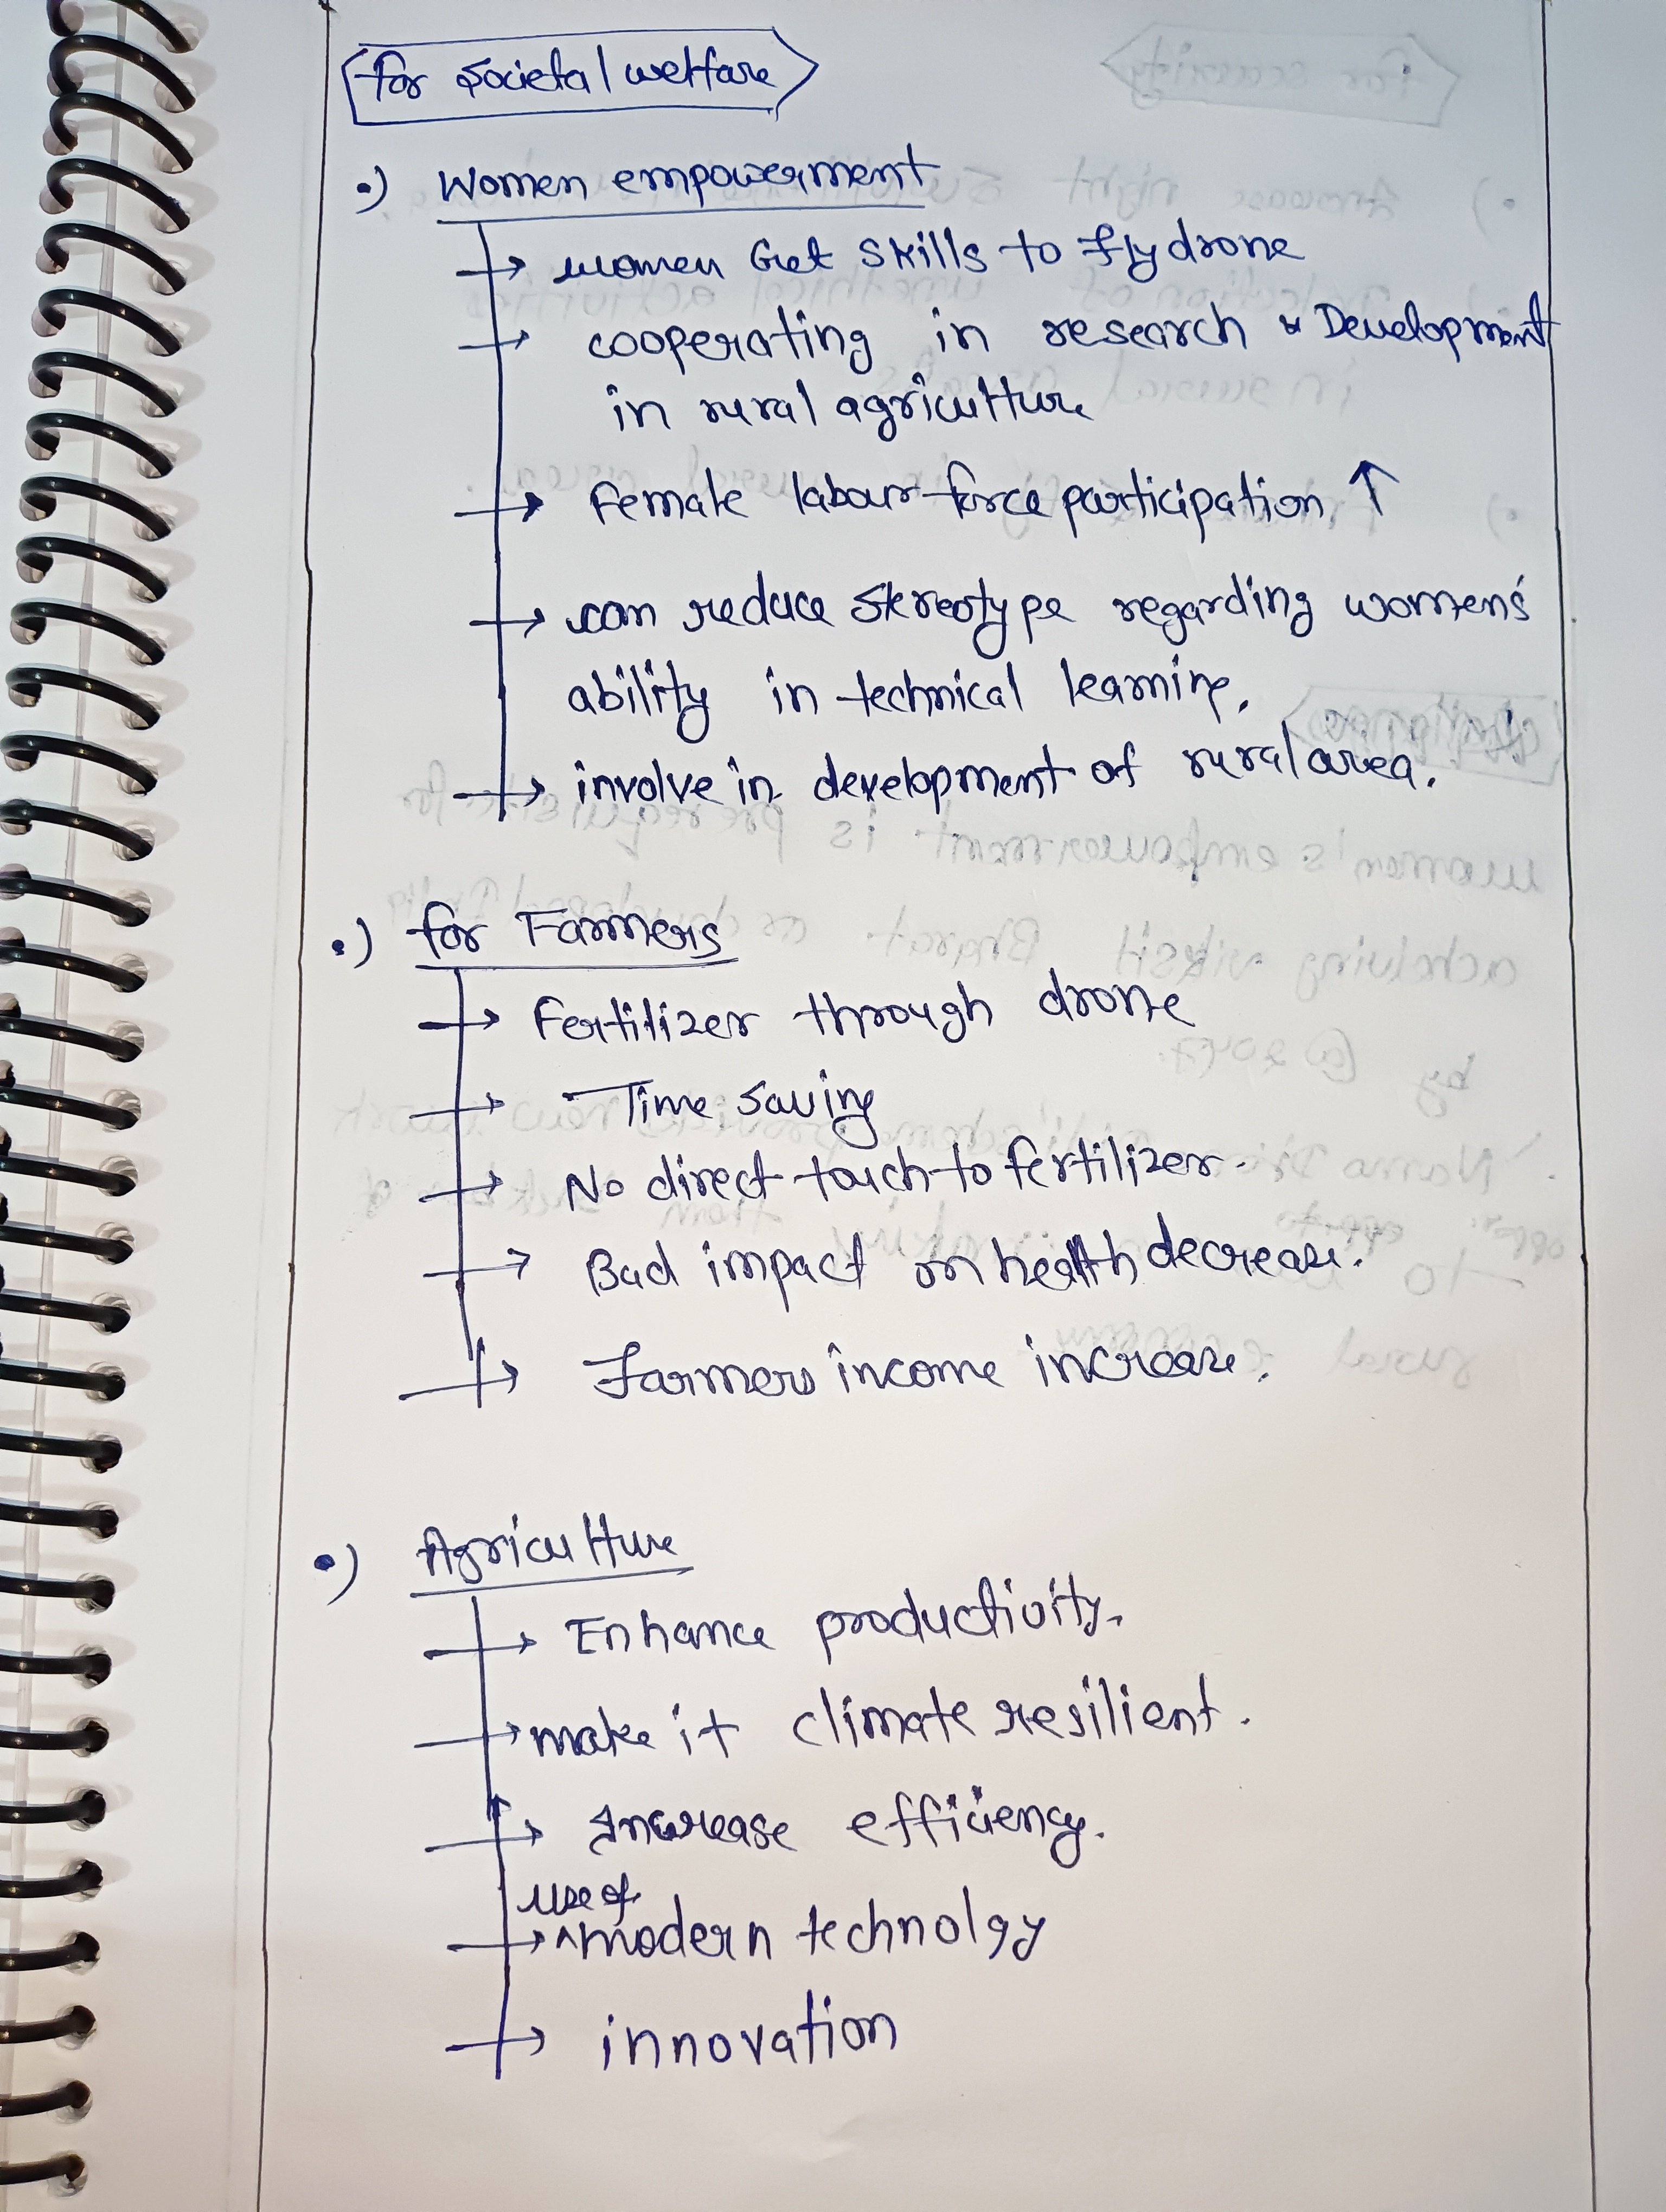 for societal welfare
•) Women empowerment
→ women Get skills to fly drone
→ cooperating in research & Development
in rural agriculture
→ Female labour force participation ↑
→ can reduce stereotype regarding womens'
ability in technical learning.
→ involve in development of rural area.
•) for Farmers
→ Fertilizer through drone
→ Time saving
→ No direct touch to fertilizer.
→ Bad impact on health decrease.
→ Farmers income increase.
•) Agriculture
→ Enhance productivity.
→ make it climate resilient.
→ Increase efficiency.
use of
→ ^modern technolgy
→ innovation